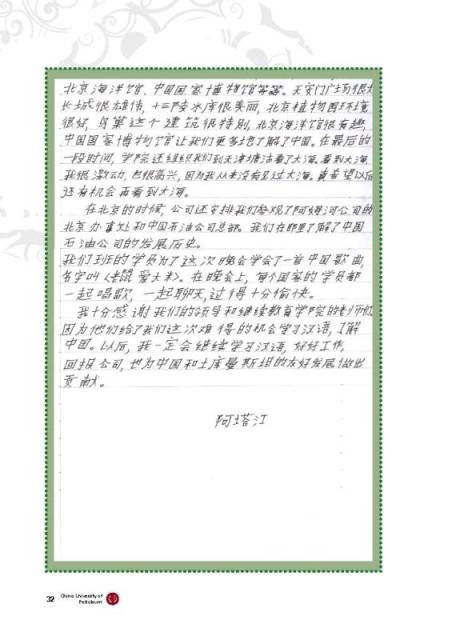 北京海洋馆、中国国家博物馆等等。天安门广场很大
长城很雄伟,十三陵水库很美丽,北京植物园环境
很好,鸟巢这个建筑很特别,北京海洋馆很有趣,
中国国家博物馆让我们更多地了解了中国。在最后的
一段时间,学院还组织我们到天津塘沽看了大海。看到大海
我很激动,也很高兴,因为我从来没有见过大海。真希望以后
还有机会再看到大海。
在北京的时候,公司还安排我们参观了阿姆河公司的
北京办事处和中国石油公司总部。我们在那里了解了中国
石油公司的发展历史。
我们班的学员为了这次晚会学会了一首中国歌曲,
名字叫《老鼠爱大米》。在晚会上,每个国家的学员都
一起唱歌,一起聊天,过得十分愉快。
我十分感谢我们的领导和继续教育学院的老师们
因为他们给了我们这次难得的机会学习汉语,了解
中国。以后,我一定会继续学习汉语,好好工作,
回报公司,也为中国和土库曼斯坦的友好发展做出
贡献。
阿塔江
32 China University of
Petroleum